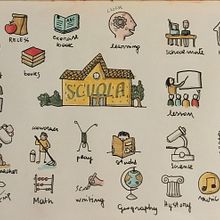 RECESS
exercise book
learning
schoolmate
books
SCUOLA
lesson
play
study
Science
Math
writing
Geography
Hystory